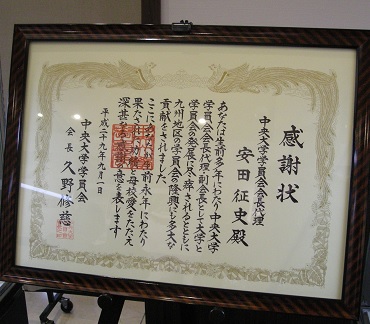 感謝状
中央大学学員会会長代理
安田征史殿
あなたは生前多年にわたり中央大学
学員会会長代理・副会長として大学と
学員会の発展に尽力されるとともに
九州地区の学員会の隆興にも多大な
貢献をされました
ここに
生前永年にわたり
果たされた
と母校愛をたたえ
深甚なる感謝の意を表します
平成二十九年九月一日
中央大学学員会
会長 久野修慈